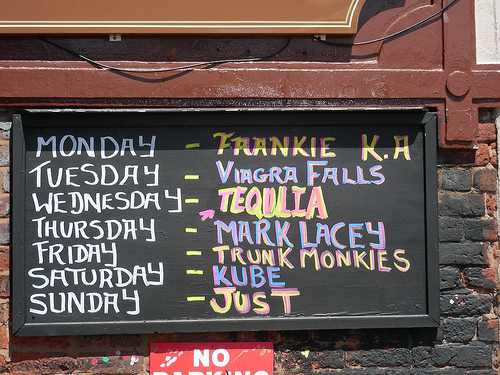 MONDAY - FRANKIE K.A
TUESDAY - VIAGRA FALLS
WEDNESDAY - TEQULIA
THURSDAY - MARK LACEY
FRIDAY - TRUNK MONKIES
SATURDAY - KUBE
SUNDAY - JUST
NO
PARKING